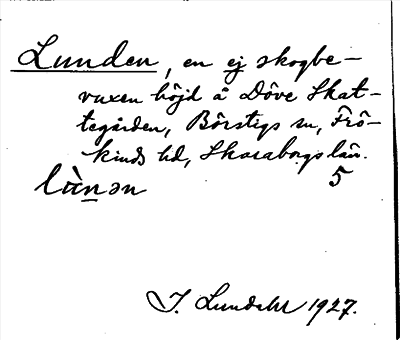 Lunden, en ej skogbe-
vuxen höjd å Döve Skat-
tegården, Börstigs sn, Frö-
kinds hd, Skaraborgs län.
lùnən 5
I. Lundahl 1927.